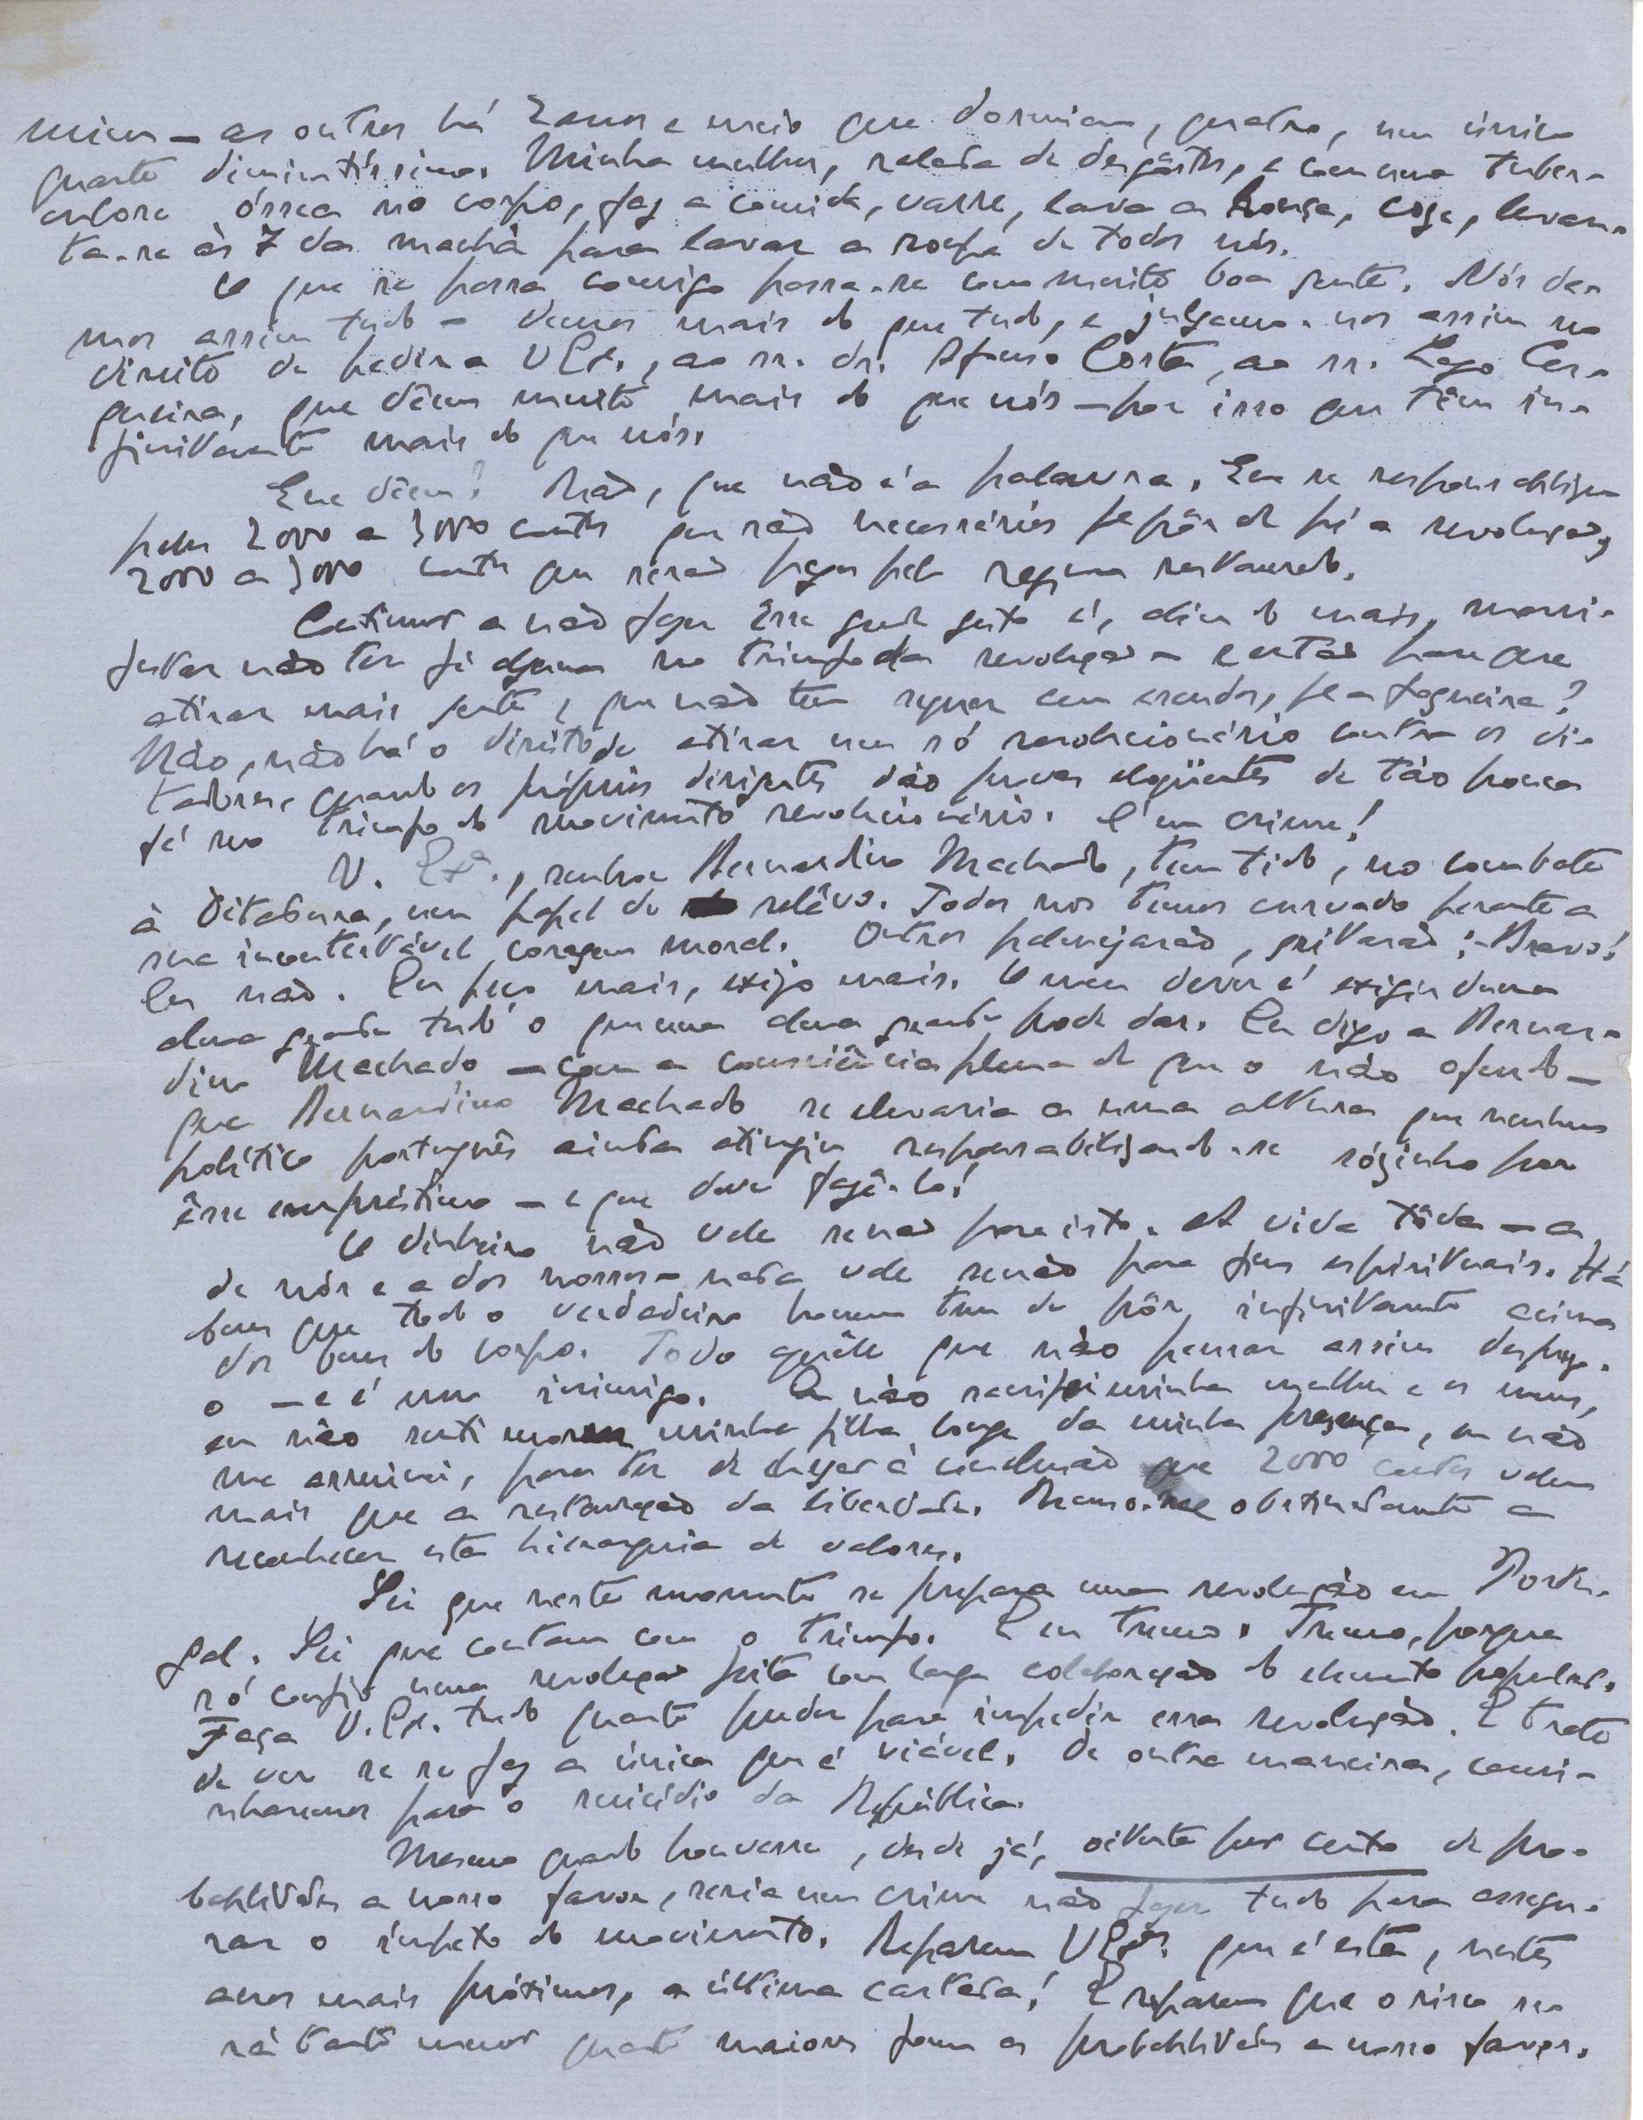 mim — as outras há 2 anos e meio que dormiam, quatro, num único
quarto diminutíssimo. Minha mulher, ralada de desgostos, e com uma tuber-
culose óssea no corpo, faz a comida, varre, lava a louça, coze, levan-
ta-se às 7 da manhã para lavar a roupa de todos nós.
O que se passa comigo passa-se com muito boa gente. Nós da-
mos assim tudo — damos mais do que tudo, e julgamo-nos assim no
direito de pedir a V Ex., ao sr. dr. Afonso Costa, ao sr. Lago Cer-
queira, que dêem muito mais do que nós — por isso que têm in-
finitamente mais do que nós.
Que dêem? Não, que não é a palavra. Que se responsabilizem
pelos 2000 a 3000 contos que são necessários p.ª pôr de pé a revolução,
2000 a 3000 contos que serão pagos pelo regime restaurado.
Continuar a não fazer êsse grande gesto é, além do mais, mani-
festar não ter fé alguma no triunfo da revolução — e então para que
atirar mais gente, que não tem sequer cem escudos, p.ª a fogueira?
Não, não há o direito de atirar um só revolucionário contra os di-
tadores, quando os próprios dirigentes dão provas eloqüentes de tão pouca
fé no triunfo do movimento revolucionário. É um crime!
V. Ex.ª, senhor Bernardino Machado, tem tido, no combate
à Ditadura, um papel de relêvo. Todos nos temos curvado perante a
sua incontestável coragem moral. Outros pelejarão, gritarão: — Bravo!
Eu não. Eu peço mais, exijo mais. O meu dever é exigir duma
alma grande tudo o que uma alma grande pode dar. Eu digo a Bernar-
dino Machado — com a consciência plena de que o não ofendo —
que Bernardino Machado se elevaria a uma altura que nenhum
político português ainda atingiu responsabilizando-se sózinho por
êsse empréstimo — e que deve fazê-lo!
O dinheiro não vale senão para isto. A vida tôda — a
de nós e a dos nossos — nada vale senão para fins espirituais. Há
bens que todo o verdadeiro homem tem de pôr infinitamente acima
dos bens do corpo. Todo aquêle que não pensar assim desprezo-
o — e é um inimigo. Eu não sacrifiquei minha mulher e os meus,
eu não senti morrer minha filha longe da minha presença, eu não
me arruinei, para ter de chegar à conclusão que 2000 contos valem
mais que a restauração da liberdade. Recuso-me obstinadamente a
reconhecer esta hierarquia de valores.
Sei que neste momento se prepara uma revolução em Portu-
gal. Sei que contam com o triunfo. E eu tremo. Tremo, porque
só confio numa revolução feita com larga colaboração do elemento popular.
Faça V. Ex. tudo quanto puder para impedir essa revolução. E trate
de ver se se faz a única que é viável. De outra maneira, cami-
nharemos para o suicídio da República.
Mesmo quando houvesse, desde já, oitenta por cento de pro-
babilidades a nosso favor, seria um crime não fazer tudo para assegu-
rar o ímpeto do movimento. Reparem V Ex.as que é esta, nestes
anos mais próximos, a última cartada! E reparem que o risco se-
rá tanto menor quanto maiores forem as probabilidades a nosso favor.